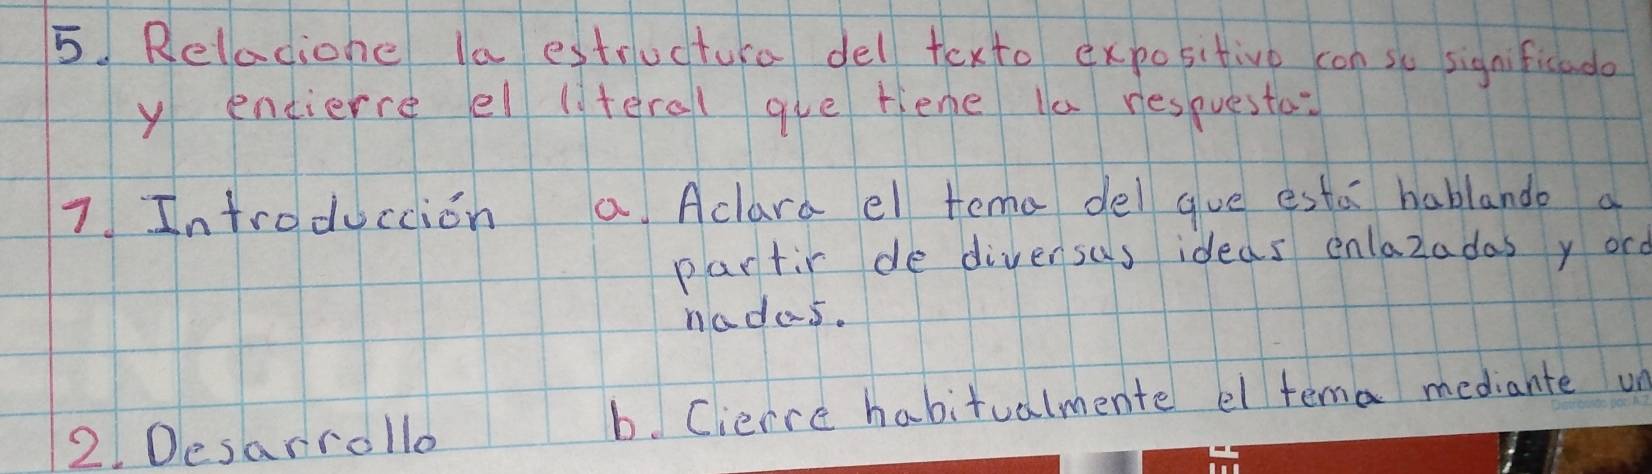 5. Relacione la estructura del texto expositivo con su significado
y encierre el literal que tiene la respuesta:
1. Introducción a. Aclara el tema del que está hablando a
partir de diversas ideas enlazadas y ord
nadas.
2. Desarrollo b. Cierre habitualmente el tema mediante un